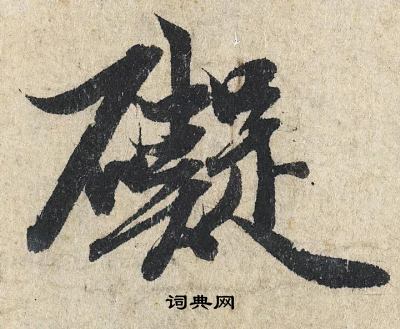 礙
词典网